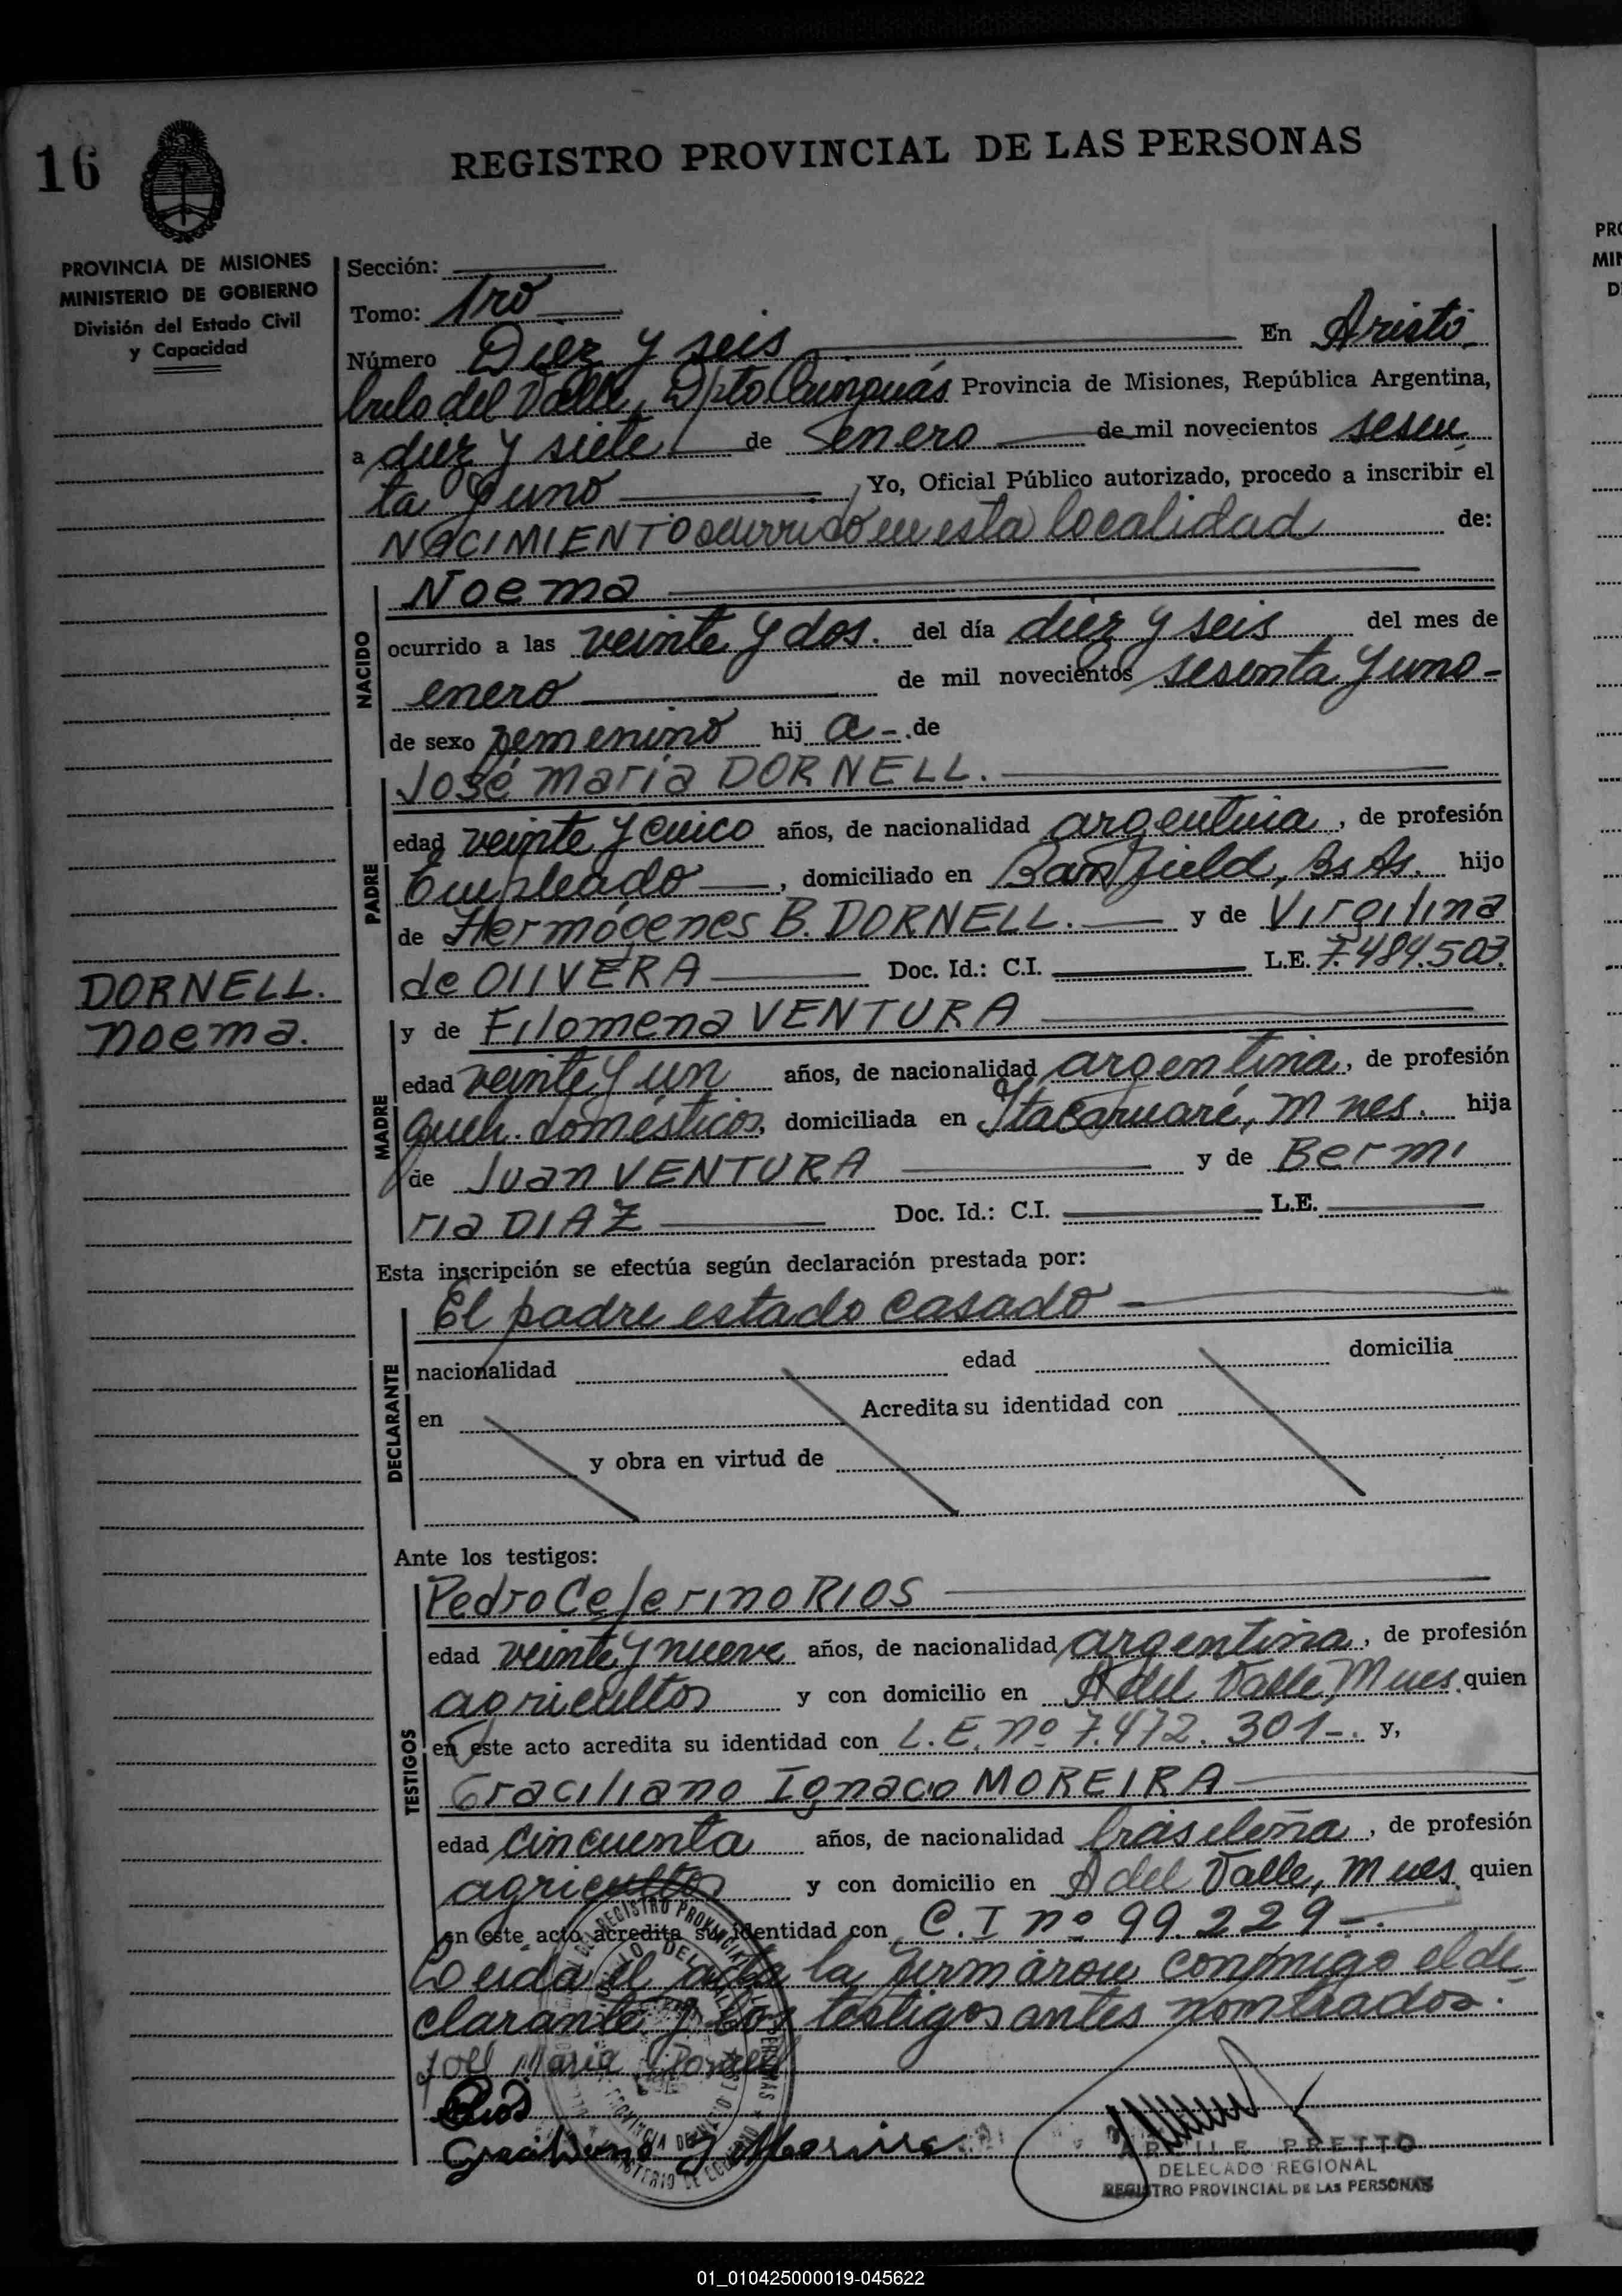 16
REGISTRO PROVINCIAL DE LAS PERSONAS
PROVINCIA DE MISIONES
MINISTERIO DE GOBIERNO
División del Estado Civil
y Capacidad
Sección:
Tomo: 1ro
Número Diez y seis En Aristó
bulo del Valle, Dpto Cainguás Provincia de Misiones, República Argentina,
a diez y siete de enero de mil novecientos sesen
ta y uno Yo, Oficial Público autorizado, procedo a inscribir el
NACIMIENTO ocurrido en esta localidad de:
NACIDO
Noema
ocurrido a las veinte y dos. del día diez y seis del mes de
enero de mil novecientos sesenta y uno-
de sexo femenino hij a-. de
PADRE
José maría DORNELL.
edad veinte y cinco años, de nacionalidad argentina, de profesión
Empleado, domiciliado en Banfield, Bs As. hijo
de Hermógenes B. DORNELL. y de Virgilina
de OlIVERA Doc. Id.: C.I. L.E. 7.484.503.
DORNELL.
noema.
MADRE
y de Filomena VENTURA
edad veinte y un años, de nacionalidad argentina, de profesión
queh. domésticos, domiciliada en Itacaruaré, Mnes. hija
de Juan VENTURA y de Bermi
ria DIAZ Doc. Id.: C.I. L.E.
Esta inscripción se efectúa según declaración prestada por:
DECLARANTE
El padre estado casado -
nacionalidad edad domicilia
en Acredita su identidad con
y obra en virtud de
Ante los testigos:
TESTIGOS
Pedro Ceferino RIOS
edad veinte y nueve años, de nacionalidad argentina, de profesión
agricultor y con domicilio en A del Valle, Mnes. quien
en este acto acredita su identidad con L.E. nº 7.472.301-. y,
Graciliano Ignacio MOREIRA
edad cincuenta años, de nacionalidad brasileña, de profesión
agricultor y con domicilio en A del Valle, Mnes. quien
en este acto acredita su identidad con C.I nº 99.229-.
Leida el acta la firmaron conmigo el de
clarante y los testigos antes nombrados.
José María Dornell
Rios
Graciliano I Moreira
PRETTO
DELEGADO REGIONAL
REGISTRO PROVINCIAL DE LAS PERSONAS
01_010425000019-045622